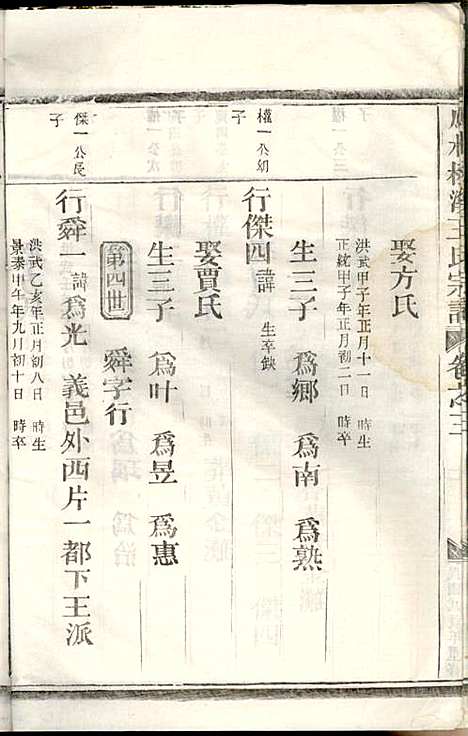 王氏宗譜 卷之三
娶方氏
洪武甲子年正月十一日 時生
正統甲子年正月初二日 時卒
生三子 為鄉 為南 為熟
權一公幼子
行傑四 諱 生卒缺
娶賈氏
生三子 為叶 為昱 為惠
第四世 舜字行
傑一公長子
行舜一 諱為光 義邑外西片一都下王派
洪武乙亥年正月初八日 時生
景泰甲午年九月初十日 時卒